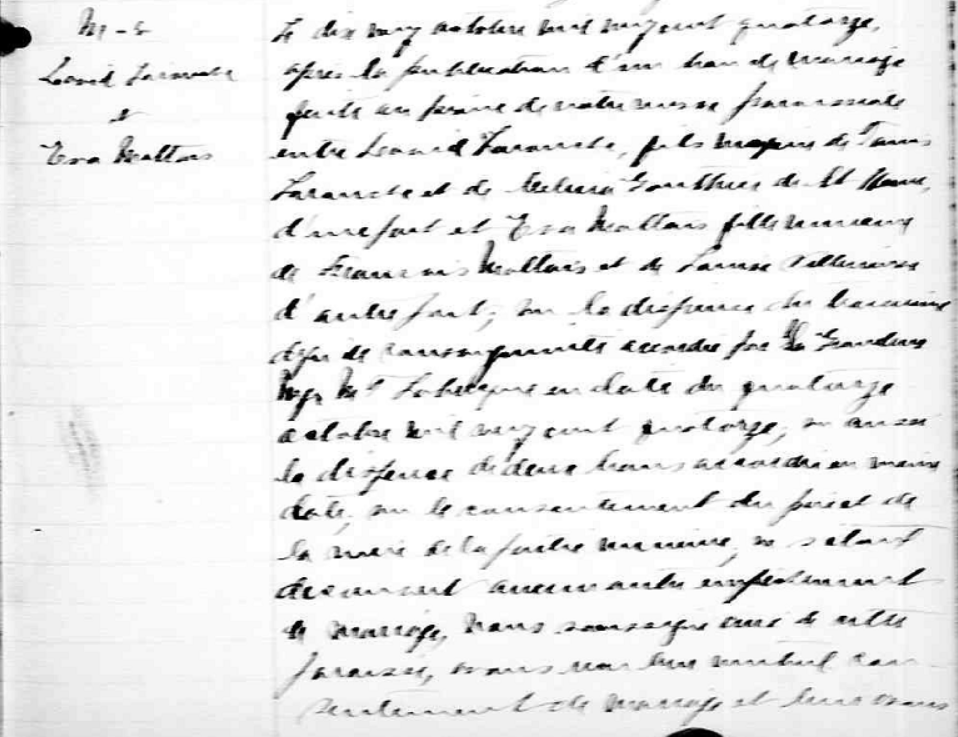 M-5
et
Eva Maltais
Le dix neuf octobre mil neuf cent quatorze,
après la publication d'un ban de mariage
faite au prône de notre messe paroissiale
entre Léonid Larouche, fils majeur de
Larouche et de Gauthier de St
d'une part et Eva Maltais fille mineure
de François Maltais et de Louise Pelletier
d'autre part; vu la dispense du troisième
degré de consanguinité accordée par Sa Grandeur
Mgr M. T. Labrecque en date du quatorze
octobre mil neuf cent quatorze, vu aussi
la dispense de deux bans accordée en même
date, vu le consentement du père et de
la mère de la partie mineure, ne s'étant
découvert aucun autre empêchement
de mariage, Nous soussigné curé de cette
paroisse, avons reçu leur mutuel con-
sentement de mariage et leur avons